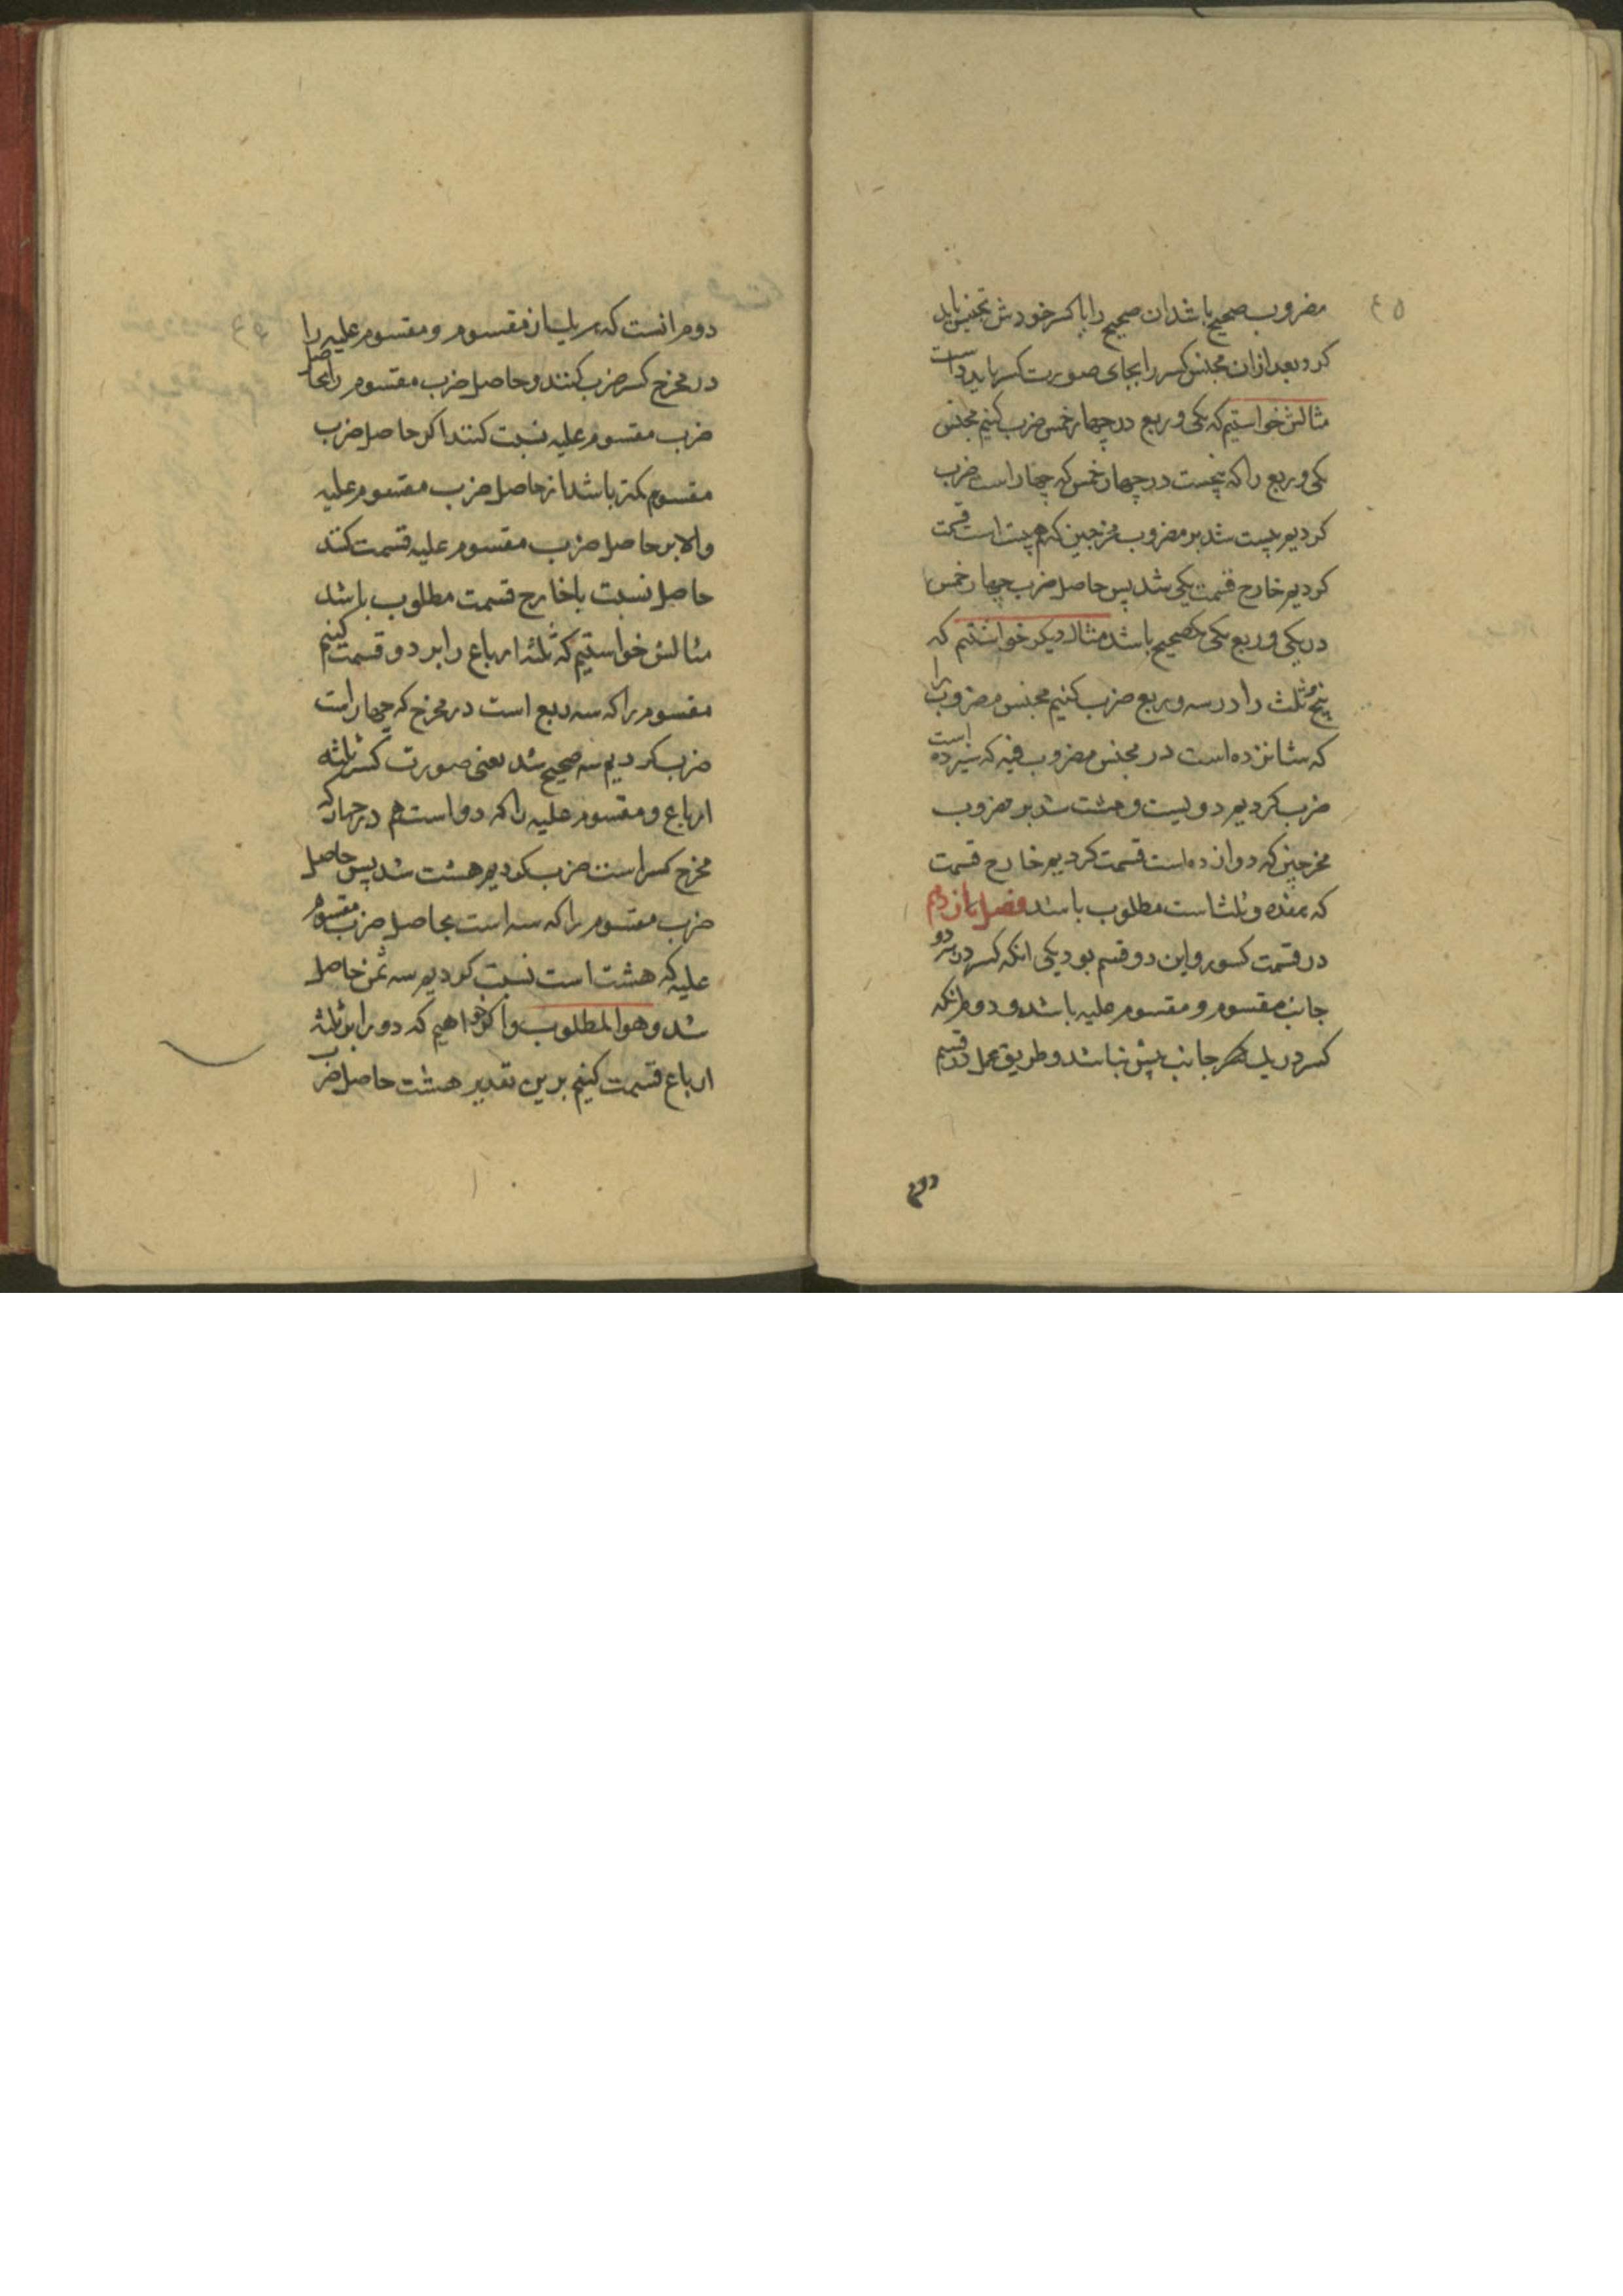 ٤٥
مضروب صحیح باشد ان صحیح را با کسر خودش تجنیس باید
کرد و بعد ازان مجنس کسر را بجای صورت کسر باید دانست
مثالش خواستیم که یکی و ربع در چهار خمس ضرب کنیم مجنس
یکی و ربع را که پنجست در چهار خمس که چهار است ضرب
کردیم بیست شد بر مضروب مخرجین که هم بیست است قسمت
کردیم خارج قسمت یکی شد پس حاصل ضرب چهار خمس
در یکی و ربع یکی صحیح باشد مثال دیکر خواستیم که
پنج و ثلث را در سه و ربع ضرب کنیم مجنس مضروب را
که شانزده است در مجنس مضروب فیه که سیزده است
ضرب کردیم دویست و هشت شد بر مضروب
مخرجین که دوازده است قسمت کردیم خارج قسمت
که هفده و ثلث است مطلوب باشد فصل یازدهم
در قسمت کسور و این دو قسم بود یکی انکه کسر در هر دو
جانب مقسوم و مقسوم علیه باشد و دوم انکه
کسر در یک جانب بیش نباشد و طریق عمل در قسم
دوم
٤٦
دوم انست که هر یک از مقسوم و مقسوم علیه را
در مخرج کسر ضرب کنند و حاصل ضرب مقسوم را بحاصل
ضرب مقسوم علیه نسبت کنند اکر حاصل ضرب
مقسوم کمتر باشد از حاصل ضرب مقسوم علیه
والا بر حاصل ضرب مقسوم علیه قسمت کنند
حاصل نسبت یا خارج قسمت مطلوب باشد
مثالش خواستیم که ثلثه ارباع را بر دو قسمت کنیم
مقسوم را که سه ربع است در مخرج که چهار است
ضرب کردیم سه صحیح شد یعنی صورت کسر ثلثه
ارباع و مقسوم علیه را که دو است هم در چهار که
مخرج کسر است ضرب کردیم هشت شد پس حاصل
ضرب مقسوم را که سه است بحاصل ضرب مقسوم
علیه که هشت است نسبت کردیم سه ثمن حاصل
شد و هو المطلوب و اکر خواهیم که دو را بر ثلثه
ارباع قسمت کنیم برین تقدیر هشت حاصل ضرب